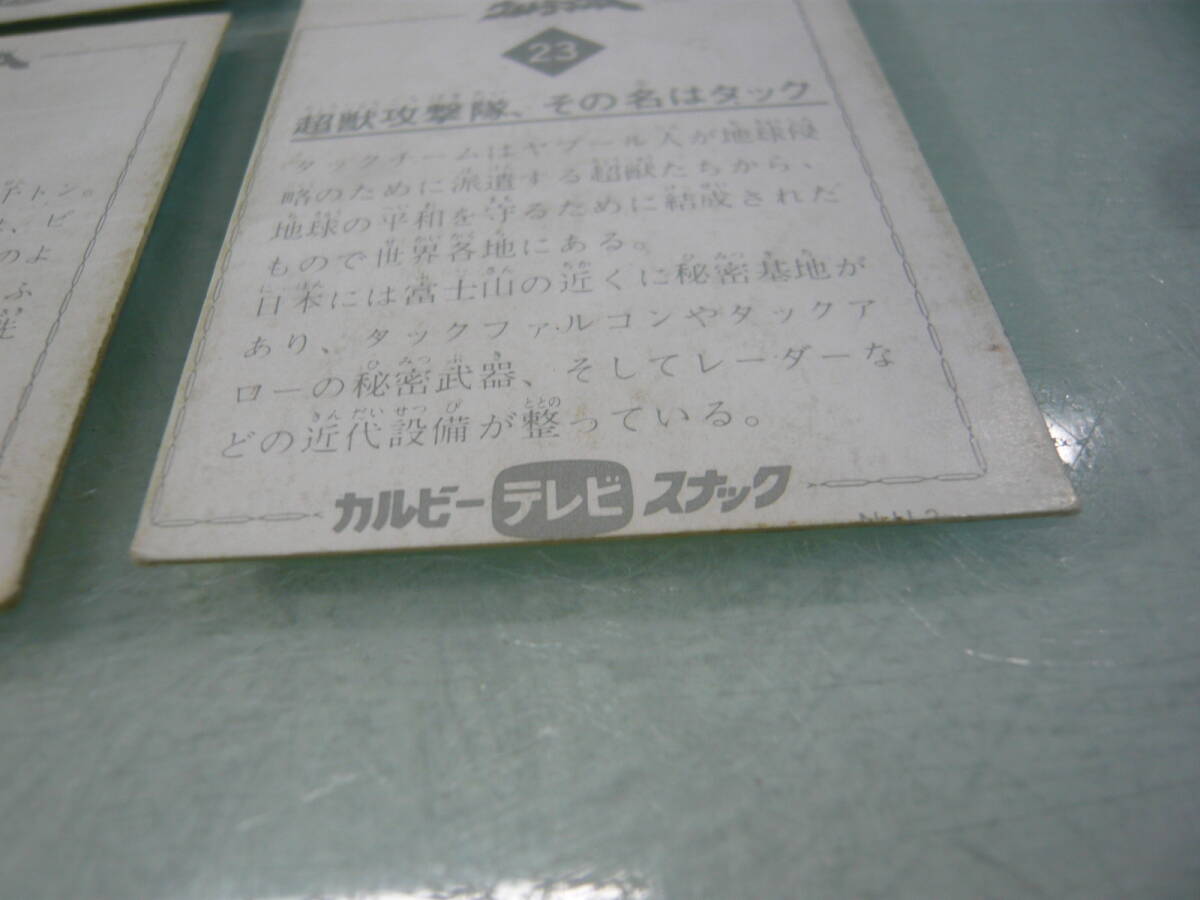 23
超獣攻撃隊、その名はタック
タックチームはヤプール人が地球侵
略のために派遣する超獣たちから、
地球の平和を守るために結成された
もので世界各地にある。
日本には富士山の近くに秘密基地が
あり、タックファルコンやタックア
ローの秘密武器、そしてレーダーな
どの近代設備が整っている。
カルビー テレビ スナック
トン。
ビ
のよ
ふ